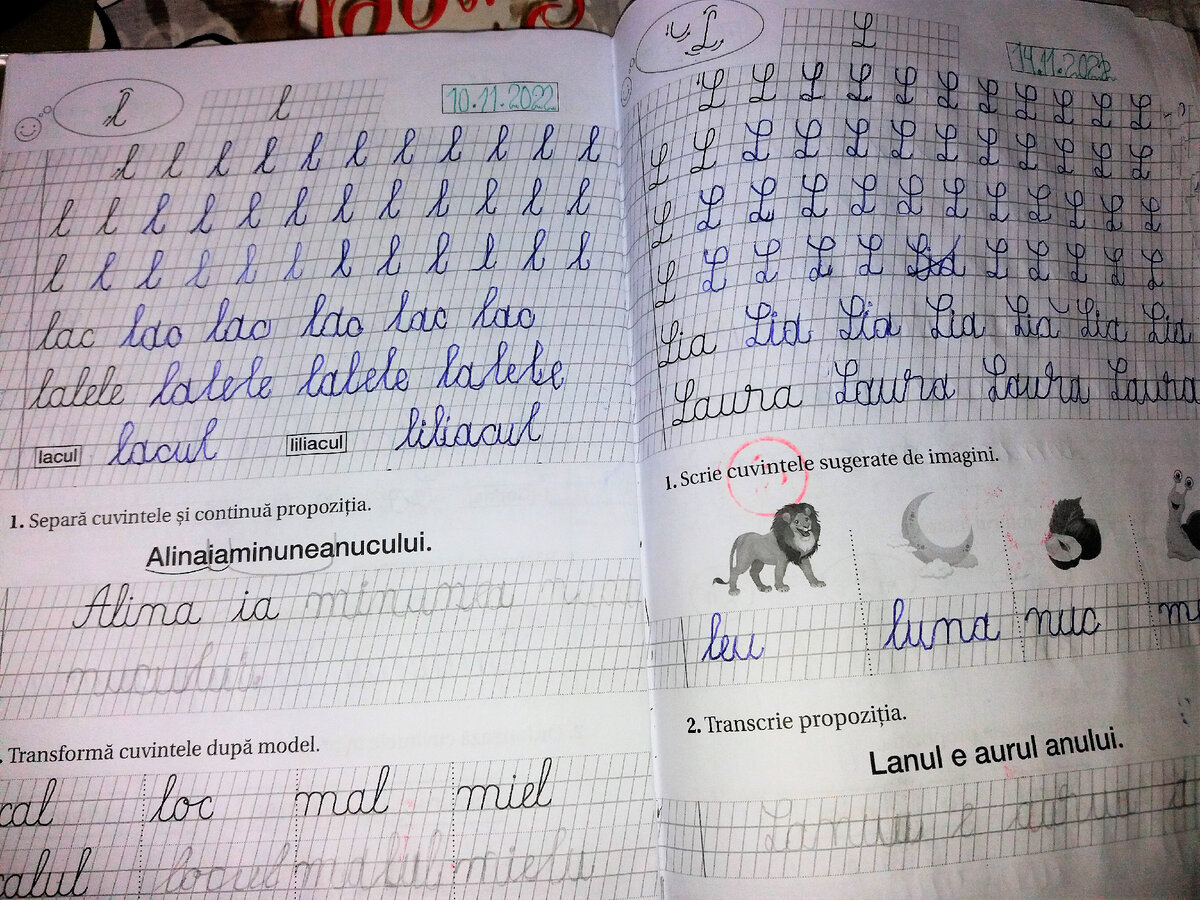 l l 10.11.2022
l l l l l l l l l l l
l l l l l l l l l l l l
l l l l l l l l l l l l
lac lac lac lac lac lac
lalele lalele lalele lalele
lacul lacul liliacul liliacul
1. Separă cuvintele și continuă propoziția.
Alinaiaminuneanucului.
Alina ia minunea
nucului
. Transformă cuvintele după model.
cal loc mal miel
calul locul malul mielu
L L 14.11.2022
L L L L L L L L L L
L L L L L L L L L L L
L L L L L L L L L L L
L L L L L L L L L L
Lia Lia Lia Lia Lia Lia Lia
Laura Laura Laura Laura
1. Scrie cuvintele sugerate de imagini.
leu luna nuc m
2. Transcrie propoziția.
Lanul e aurul anului.
Lanul e aurul a